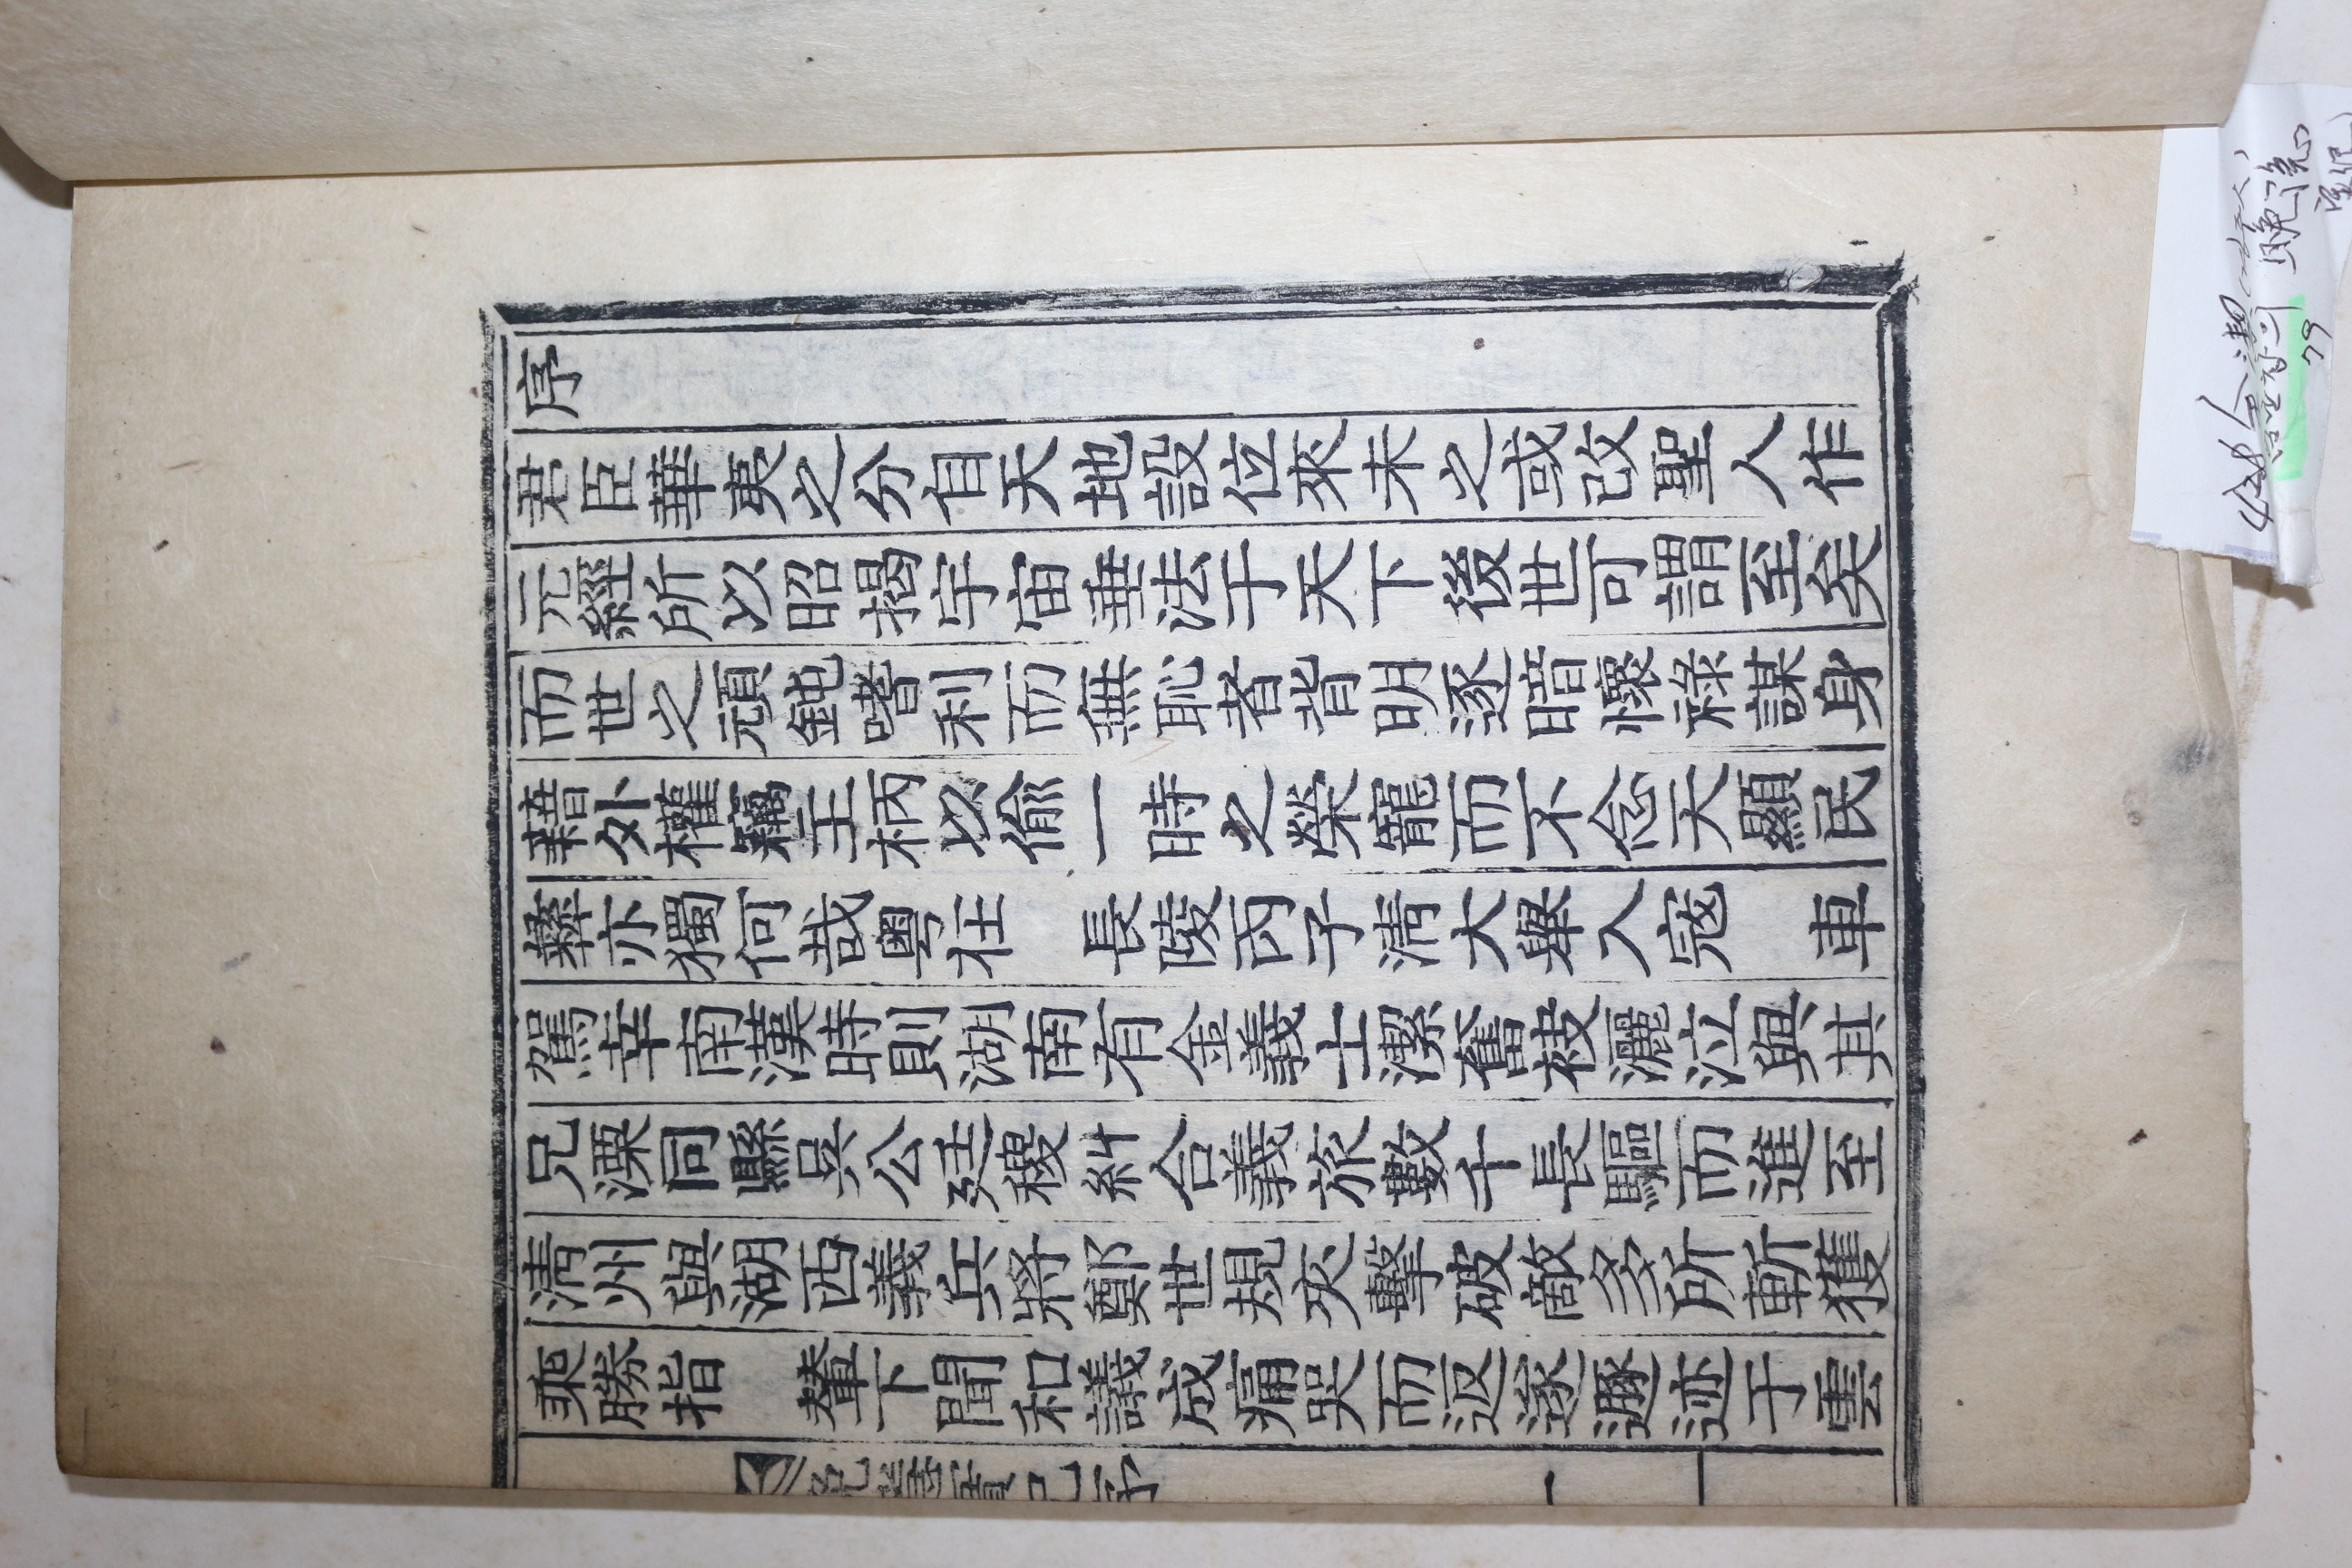 序
君臣華夷之分自天地設位來未之或改聖人作
元經所以昭揭宇宙垂法于天下後世可謂至矣
而世之頑鈍嗜利而無恥者背明逐暗懷祿謀身
藉外權竊主柄以偸一時之榮寵而不念天顯民
彝亦獨何哉粤在 長陵丙子淸大舉入寇 車
駕幸南漢時則湖南有金義士潔奮袂灑泣與其
兄溧同縣吳公廷稷糾合義旅數千長驅而進至
淸州與湖西義兵將鄭世規夾擊破敵多所斬獲
乘勝指 輦下聞和議成痛哭而返遂遯迹于雲
實記序
一
金潔
晩隱
79